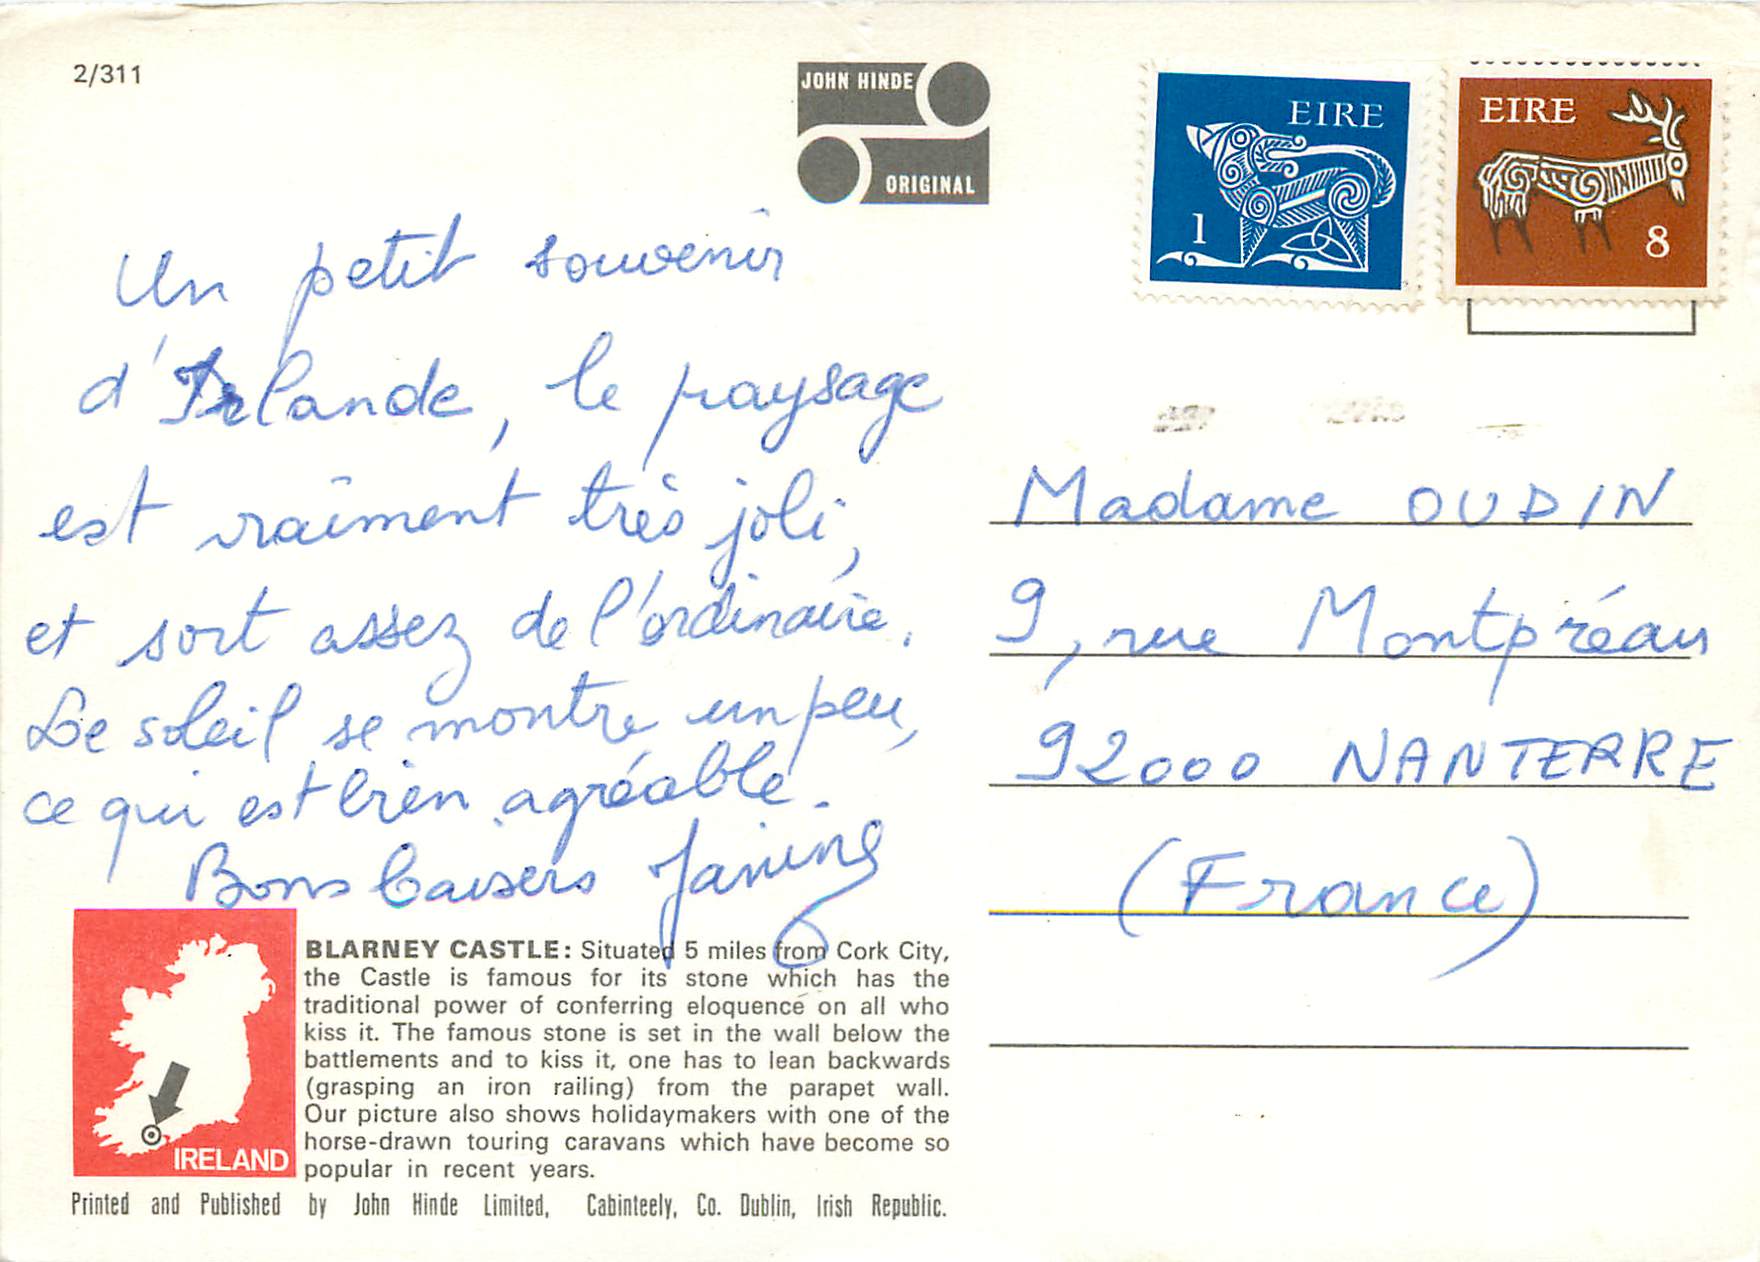 2/311
JOHN HINDE
ORIGINAL
EIRE
1
EIRE
8
Un petit souvenir
d'Irlande, le paysage
est vraiment très joli,
et sort assez de l'ordinaire.
Le soleil se montre un peu,
ce qui est bien agréable.
Bons baisers Janine
Madame OUDIN
9, rue Montpréau
92000 NANTERRE
(France)
BLARNEY CASTLE: Situated 5 miles from Cork City,
the Castle is famous for its stone which has the
traditional power of conferring eloquence on all who
kiss it. The famous stone is set in the wall below the
battlements and to kiss it, one has to lean backwards
(grasping an iron railing) from the parapet wall.
Our picture also shows holidaymakers with one of the
horse-drawn touring caravans which have become so
popular in recent years.
IRELAND
Printed and Published by John Hinde Limited, Cabinteely, Co. Dublin, Irish Republic.